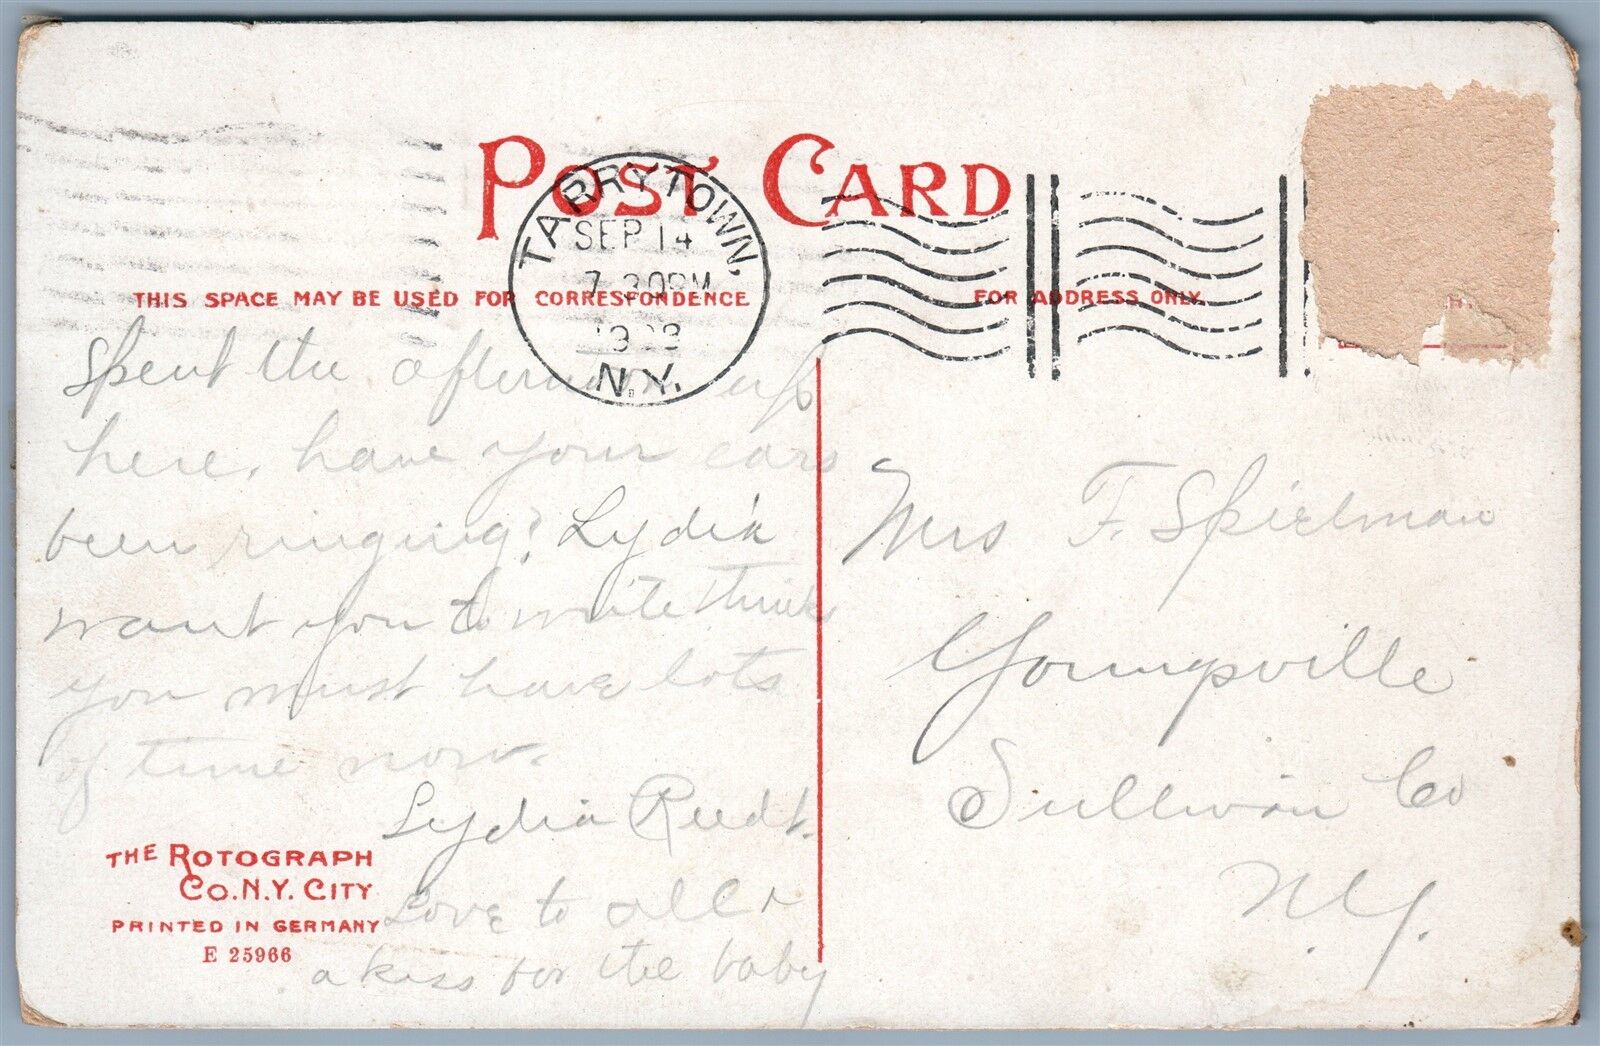 POST CARD
TARRYTOWN,
SEP 14
7 30PM
N.Y.
THIS SPACE MAY BE USED FOR CORRESPONDENCE
FOR ADDRESS ONLY.
Spent the afternoon up
here. have your ears
been ringing? Lydia
want you to write thinks
you must have lots
of time now.
Lydia Reedt.
Love to all &
a kiss for the baby
Mrs F. Spielman
Youngsville
Sullivan Co
N.Y.
THE ROTOGRAPH
CO. N.Y. CITY
PRINTED IN GERMANY
E 25966